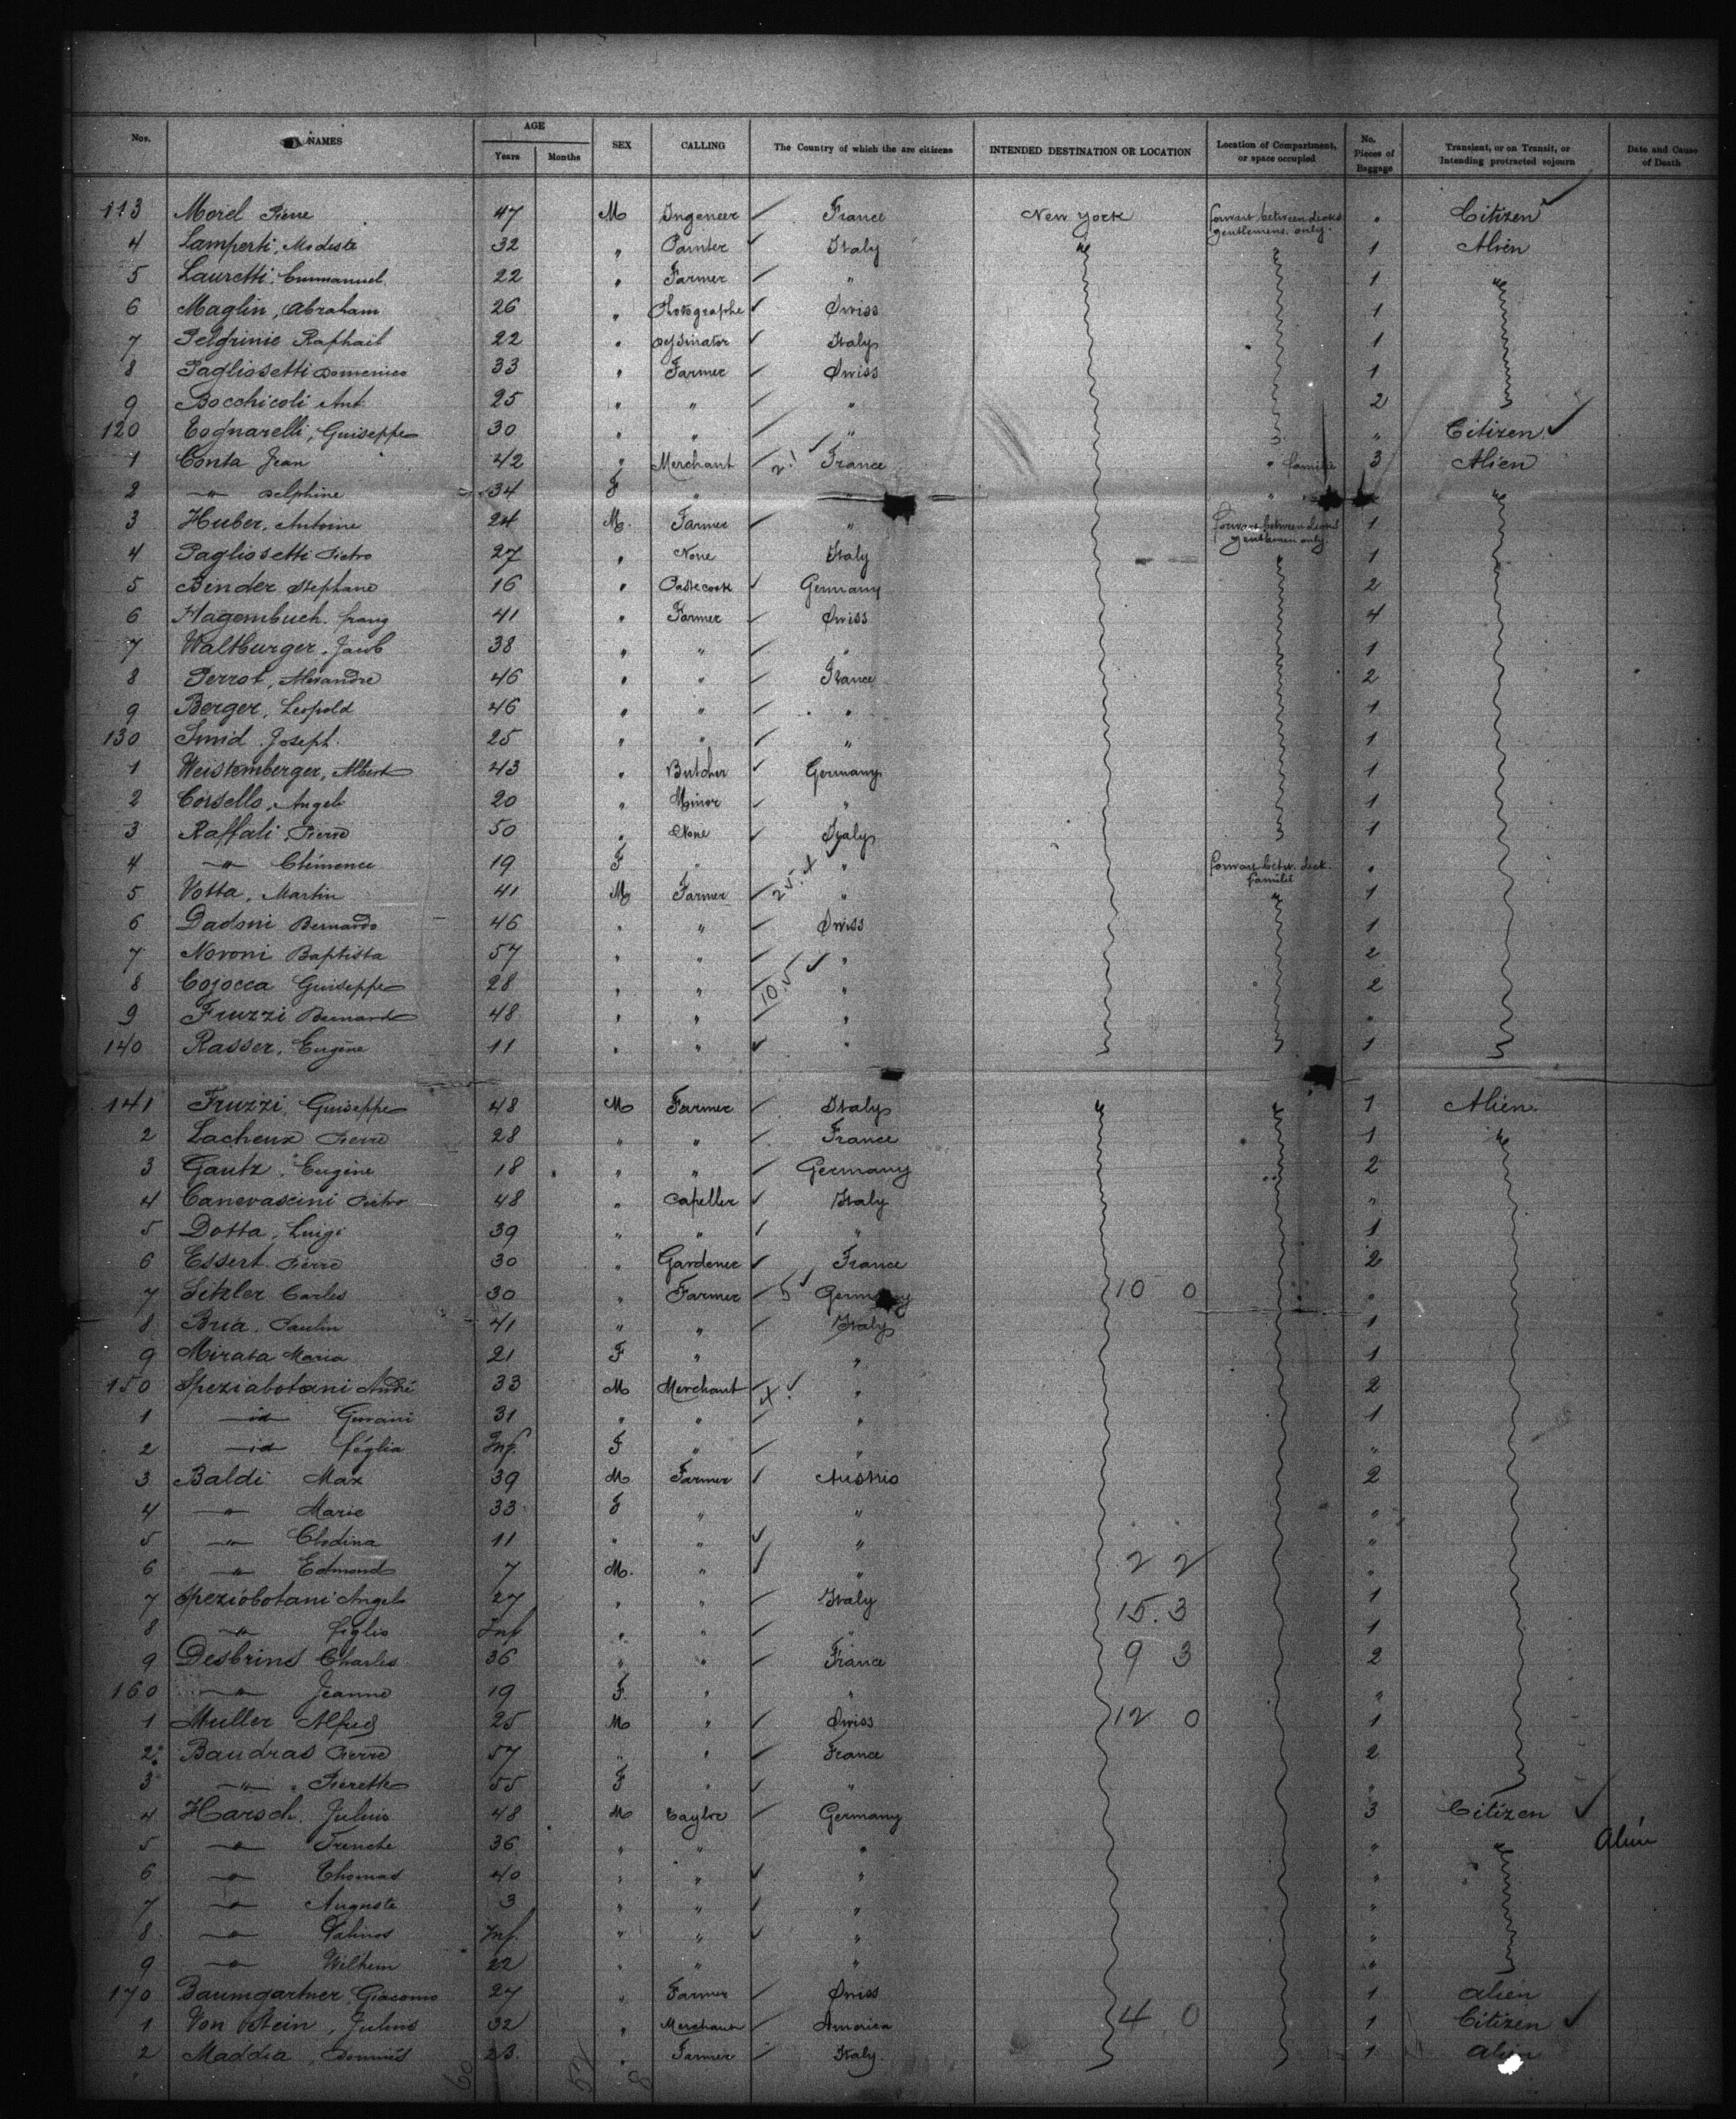 Nos. NAMES AGE Years Months SEX CALLING The Country of which the are citizens INTENDED DESTINATION OR LOCATION Location of Compartment, or space occupied No. Pieces of Baggage Transient, or on Transit, or Intending protracted sojourn Date and Cause of Death
113 Morel Pierre 47 M Ingeneer France New York forwart between decks gentlemens only. " Citizen
4 Lamperti, Modeste 32 " Painter Italy " 1 Alien
5 Lauretti, Emmanuel 22 " Farmer " 1 "
6 Maglin, Abraham 26 " Photographe Swiss 1
7 Pelgrinie Raphaël 22 " Italy 1
8 Pagliosetti Domenico 33 " Farmer Swiss 1
9 Bocchicoli Ant. 25 " " " 2
120 Tognarelli, Guiseppe 30 " " " " Citizen
1 Conta Jean 42 " Merchant 2! France " famili 3 Alien
2 " Delphine 34 F " " " "
3 Huber, Antoine 24 M. Farmer " forwart between decks gentlemen only. 1
4 Pagliosetti Pietro 27 " None Italy 1
5 Binder Stephane 16 " Pastecook Germany 2
6 Hagembuch. franz 41 " Farmer Swiss 4
7 Waltburger, Jacob 38 " " " 1
8 Perrot, Alexandre 46 " " France 2
9 Berger, Leopold 46 " " " 1
130 Smid Joseph. 25 " " " 1
1 Weistemberger, Albert 43 " Butcher Germany 1
2 Corsello, Angelo 20 " Minor " 1
3 Raffali, Pierre 50 " None Italy 1
4 " Clémence 19 F " " forwart betw. deck. famili "
5 Votta, Martin 41 M Farmer 25. " " 1
6 Dadoni Bernardo 46 " " Swiss 1
7 Novoni Baptista 57 " " " 2
8 Cojocca Guiseppe 28 " " 10.5 " 2
9 Fruzzi Bernard 48 " " " "
140 Rasser, Eugène 11 " " " 1
141 Fruzzi, Guiseppe 48 M Farmer Italy " " 1 Alien.
2 Lacheux Pierre 28 " " France 1 "
3 Gautz, Eugène 18 " " Germany 2
4 Canevascini Pietro 48 " Capeller Italy "
5 Dotta, Luigi 39 " " " 1
6 Essert. Pierre 30 " Gardener France 2
7 Sitzler Carles 30 " Farmer 5 Germany 10 0 "
8 Bria. Paulin 41 " " Italy 1
9 Mirata Maria 21 F " " 1
150 Speziabotani André 33 M Merchant " 2
1 id 31 " " " 1
2 id féglia Inf. F " " "
3 Baldi Max 39 M Farmer Austrio 2
4 " Marie 33 F " " "
5 " Clodina 11 " " " "
6 " Edmond 7 M. " " 2 2 "
7 Speziobotani Angelo 27 " " Italy 15.3 1
8 " figlio Inf " " " 1
9 Desbrins Charles 36 " " France 9 3 2
160 " Jeanne 19 F " " "
1 Muller Alfred 25 M " Swiss 12 0 1
2 Baudras Pierre 57 " " France 2
3 " Pierette 55 F " " "
4 Harsch. Julius 48 M Taylor Germany 3 Citizen
5 " Trenche 36 " " " " " Alien
6 " Thomas 40 " " " "
7 " Auguste 3 " " " "
8 " Inf. " " " "
9 " Wilhem 22 " " " "
170 Baumgartner, Giacomo 27 " Farmer Swiss 1 alien
1 Von Stein, Julius 32 " Merchant America 4 0 1 Citizen
2 Maddia, 23. " Farmer Italy. 1 alien
60 52 8